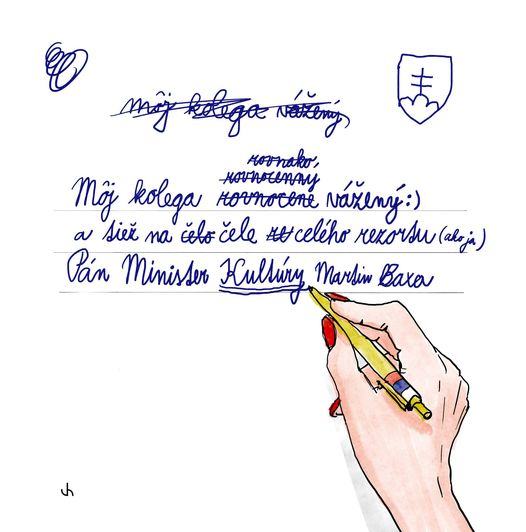 môj kolega vážený,
rovnako,
rovnocenny
Môj kolega rovnocene vážený:)
a tiež na čelo čele re celého rezortu (ako ja)
Pán Minister Kultúry Martin Baxa